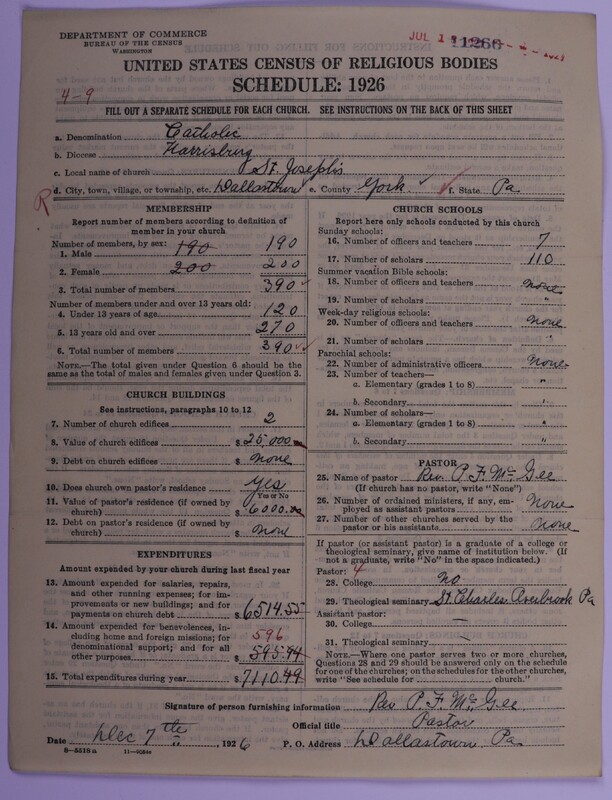 DEPARTMENT OF COMMERCE
BUREAU OF THE CENSUS
WASHINGTON
11266
UNITED STATES CENSUS OF RELIGIOUS BODIES
SCHEDULE: 1926
4-9
FILL OUT A SEPARATE SCHEDULE FOR EACH CHURCH. SEE INSTRUCTIONS ON THE BACK OF THIS SHEET
a. Denomination Catholic
b. Diocese Harrisburg
c. Local name of church St. Joseph's
d. City, town, village, or township, etc. Dallastown e. County York f. State Pa
R
MEMBERSHIP
Report number of members according to definition of member in your church
Number of members, by sex:
1. Male 190 190
2. Female 200 200
3. Total number of members 390
Number of members under and over 13 years old:
4. Under 13 years of age 120
5. 13 years old and over 270
6. Total number of members 390
NOTE.—The total given under Question 6 should be the same as the total of males and females given under Question 3.
CHURCH BUILDINGS
See instructions, paragraphs 10 to 12
7. Number of church edifices 2
8. Value of church edifices $ 25,000.
9. Debt on church edifices $ None
10. Does church own pastor's residence Yes
Yes or No
11. Value of pastor's residence (if owned by church) $ 6000.
12. Debt on pastor's residence (if owned by church) $ None
EXPENDITURES
Amount expended by your church during last fiscal year
13. Amount expended for salaries, repairs, and other running expenses; for improvements or new buildings; and for payments on church debt $ 6514.55
14. Amount expended for benevolences, including home and foreign missions; for denominational support; and for all other purposes 596 $ 595.94
15. Total expenditures during year $ 7110.49
CHURCH SCHOOLS
Report here only schools conducted by this church
Sunday schools:
16. Number of officers and teachers 7
17. Number of scholars 110
Summer vacation Bible schools:
18. Number of officers and teachers None
19. Number of scholars "
Week-day religious schools:
20. Number of officers and teachers None
21. Number of scholars "
Parochial schools:
22. Number of administrative officers None
23. Number of teachers—
a. Elementary (grades 1 to 8) "
b. Secondary "
24. Number of scholars—
a. Elementary (grades 1 to 8) "
b. Secondary "
PASTOR
25. Name of pastor Rev. P. F. McGee
(If church has no pastor, write "None")
26. Number of ordained ministers, if any, employed as assistant pastors None
27. Number of other churches served by the pastor or his assistants None
If pastor (or assistant pastor) is a graduate of a college or theological seminary, give name of institution below. (If not a graduate, write "No" in the space indicated.)
Pastor: 4
28. College No
29. Theological seminary St. Charles Overbrook Pa
Assistant pastor:
30. College —
31. Theological seminary —
NOTE.—Where one pastor serves two or more churches, Questions 28 and 29 should be answered only on the schedule for one of the churches; on the schedules for the other churches, write "See schedule for church."
Signature of person furnishing information Rev P. F. McGee
Official title Pastor
Date Dec 7th, 1926 P. O. Address Dallastown Pa.
8-5518a